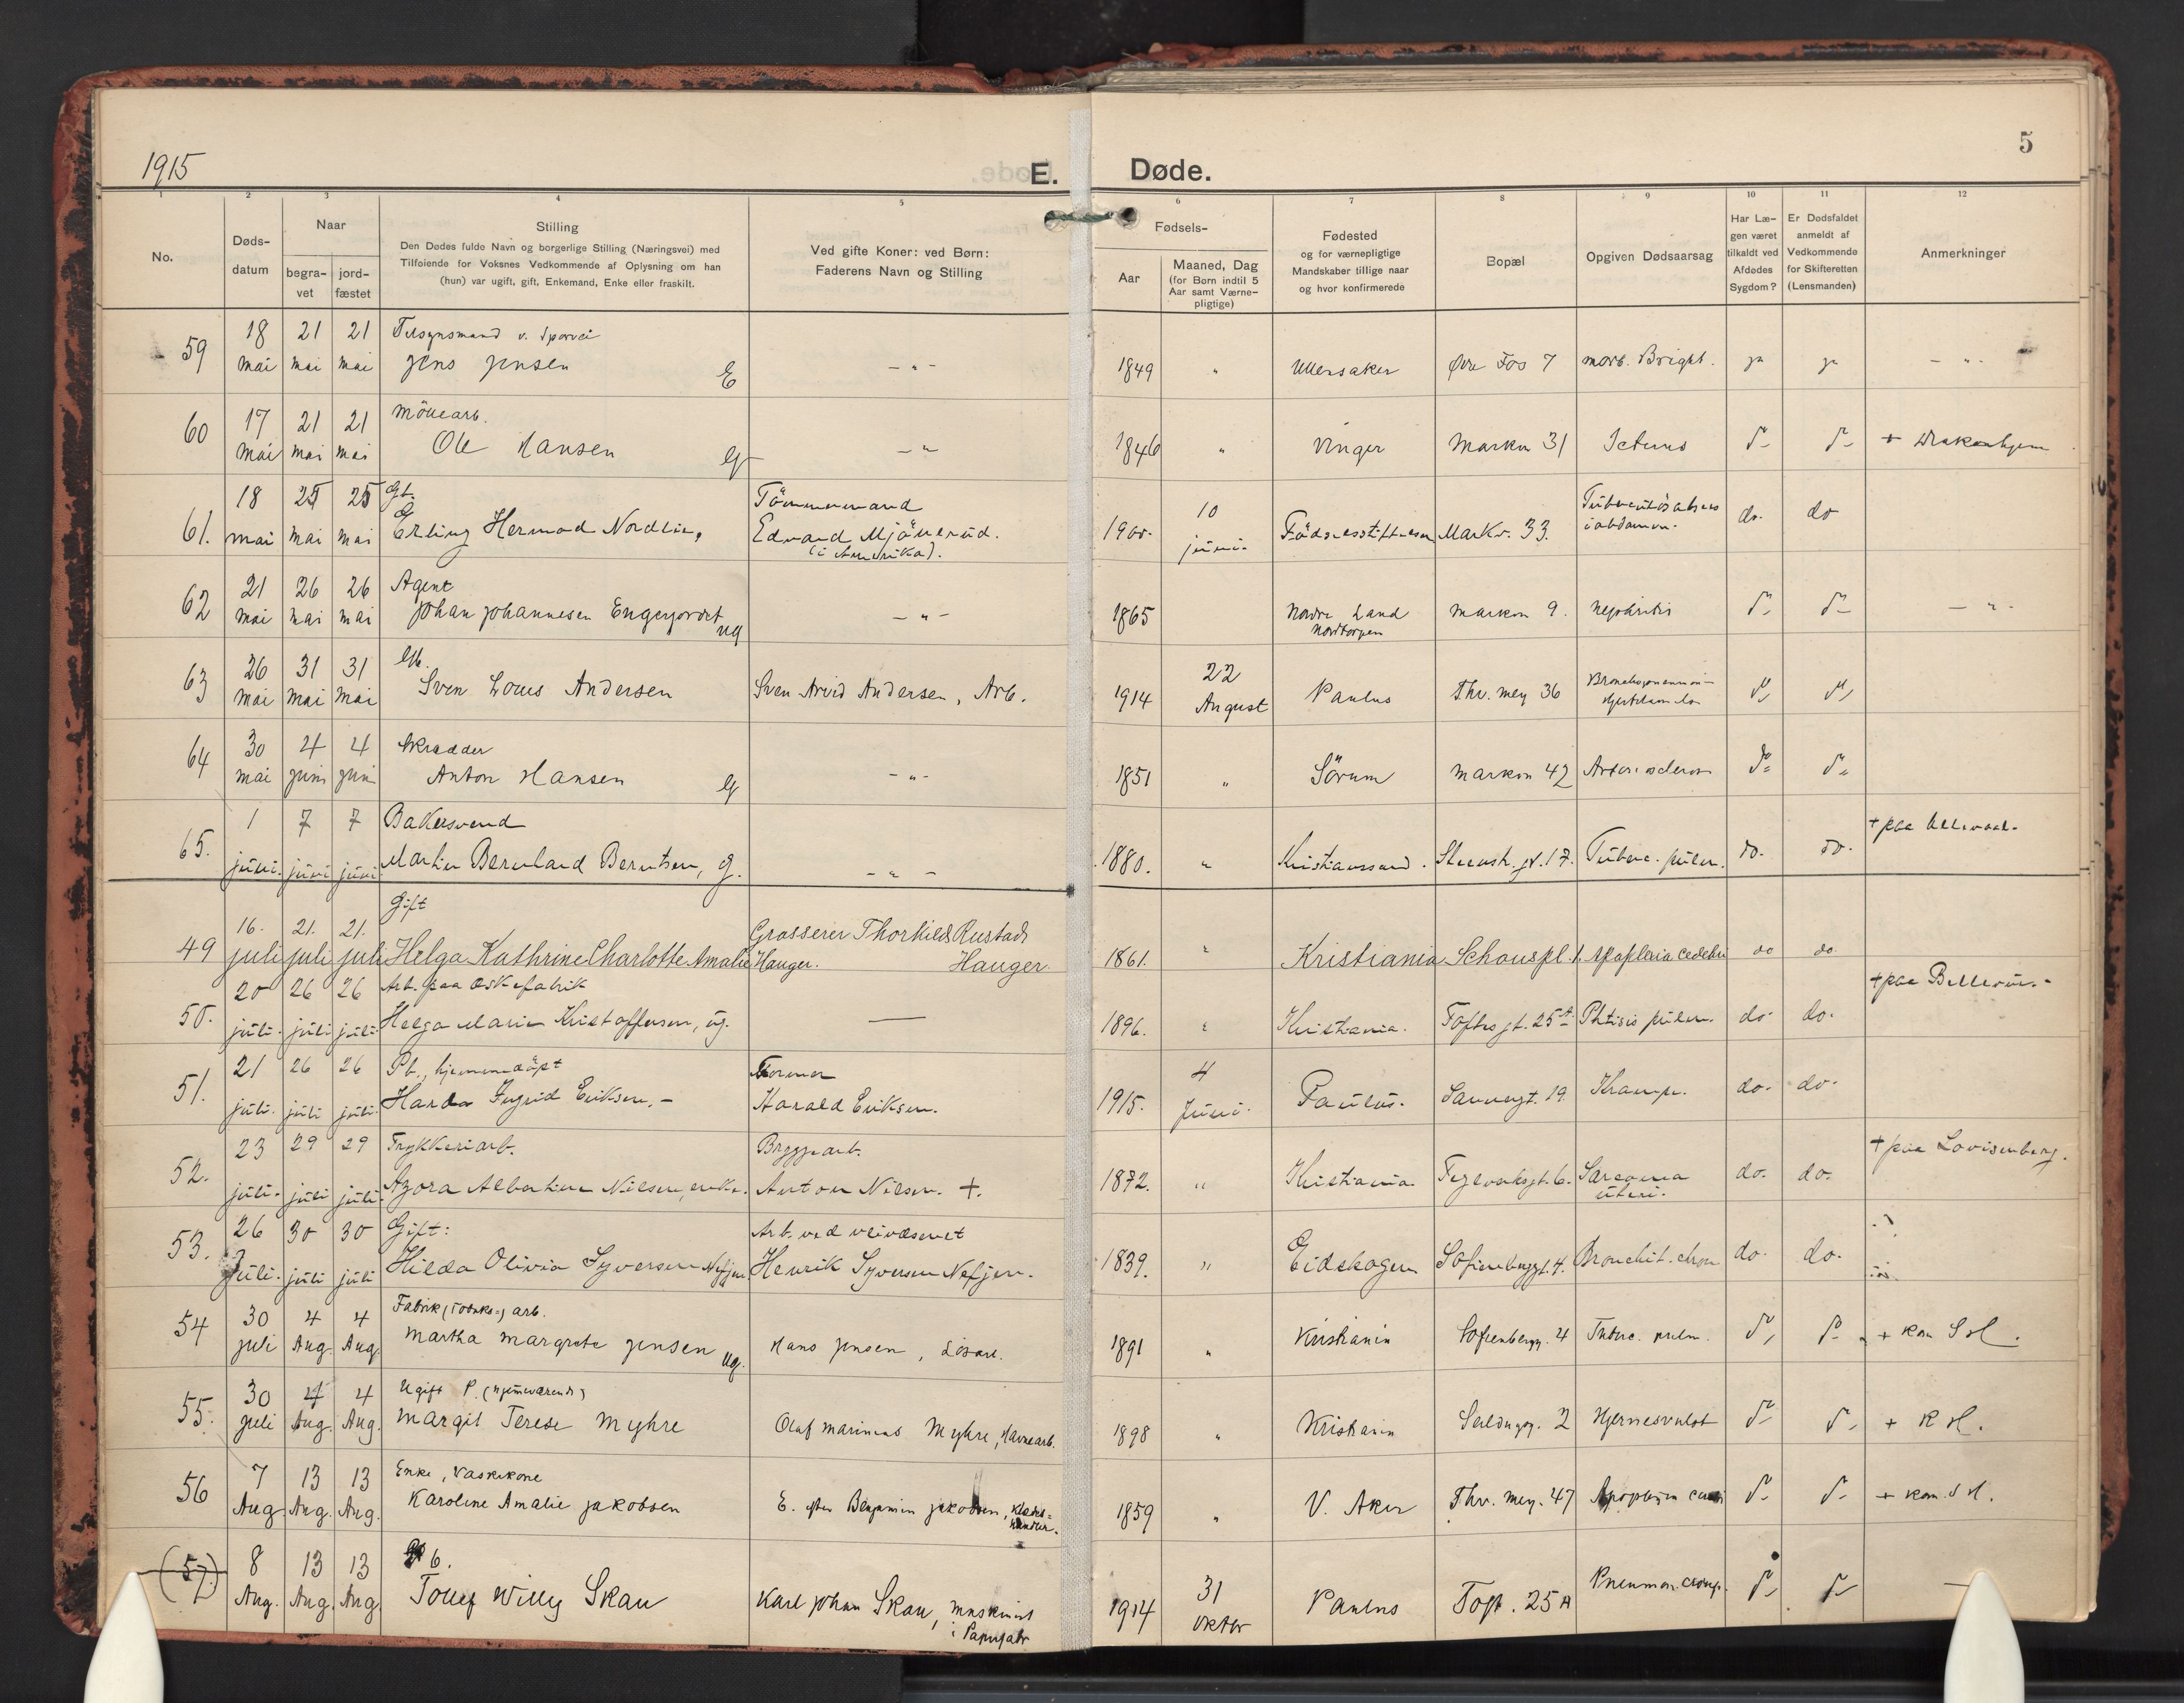 1915
E. Døde.
5
1 2 3 4 5 6 7 8 9 10 11 12
No.
Døds-
datum
Naar
begra-
vet
jord-
fæstet
Stilling
Den Dødes fulde Navn og borgerlige Stilling (Næringsvei) med
Tilføiende for Voksnes Vedkommende af Oplysning om han
(hun) var ugift, gift, Enkemand, Enke eller fraskilt.
Ved gifte Koner: ved Børn:
Faderens Navn og Stilling
Fødsels-
Aar
Maaned, Dag
(for Børn indtil 5
Aar samt Værne-
pligtige)
Fødested
og for værnepligtige
Mandskaber tillige naar
og hvor konfirmerede
Bopæl
Opgiven Dødsaarsag
Har Læ-
gen været
tilkaldt ved
Afdødes
Sygdom?
Er Dødsfaldet
anmeldt af
Vedkommende
for Skifteretten
(Lensmanden)
Anmerkninger
59 18 21 21 Tilsynsmand v. Sporvei
mai mai mai Jens Jensen E - " - 1849 " Ullensaker Øvre Fos 7 morb. Bright. ja ja - " -
60 17 21 21 Möllearb.
mai mai mai Ole Hansen G - " 1846 " Vinger Markvn 31 Icterus do do +
61. 18 25 25 Gb. Tömmermand
mai mai mai Erling Hermod Nordlie, Edvard Mjönerud. 1900. 10 juni. Födselsstiftelsen Markv. 33. i abdomen. do. do
(i Amerika).
62 21 26 26 Agent
mai mai mai Johan Johannesen Engejordet ug - " - 1865 Nordre Land Markvn 9. Nephritis do do - " -
Nordtorpen
63 26 31 31 Gb.
mai mai mai Sven Louis Andersen Sven Arvid Andersen, Arb. 1914 22 August Paulus Thv. Mey 36 do do
64 30 4 4 Skrædder
mai juni juni Anton Hansen G - " - 1851 " Sörum Markvn 42 do do
65. 1 7 7 Bakersvend + paa Ullevaal.
juni. juni juni Martin Bernhard Berntsen, g. - " - 1880. " Kristianssund. Steenstr. gt. 17. Tuberc. pulm. do. do.
Gift
49 16. 21. 21. Grosserer Thorkild Rustad
juli juli juli Helga Kathrine Charlotte Amalie Hauger. Hauger. 1861. " Kristiania Schouspl. 1. do do
50. 20 26 26 Arb. paa Æskefabrik + paa Bellevue.
juli. juli juli. Helga Marie Kristoffersen, ug. — 1896. " Kristiania. Toftesgt. 25 A. Phtisis pulm. do do.
51. 21 26 26 Pb., hjemmedöpt Former
juli. juli juli. Harda Ingrid Eriksen. - Harald Eriksen. 1915. 4 Juni. Paulus. Sannergt. 19. Krampe. do. do.
52. 23 29 29 Trykkeriarb. Bryggearb. + paa Lovisenberg.
juli. juli juli. Azora Albertine Nilsen, enke. Anton Nilsen. +. 1872. " Kristiania Teglverksgt. 6. Sarcoma uteri. do. do.
53. 26 30 30 Gift: Arb. ved veivæsenet
juli. juli juli Hilda Olivia Syversen Nefjen. Henrik Syversen Nefjen. 1839. " Eidskogen Sofienberggt. 4. Bronchit. chron do. do.
54 30 4 4 Fabrik (Tobaks=) arb.
juli Aug. Aug. Martha Margrete Jensen ug. Hans Jensen, Lösarb. 1891 " Kristiania Sofienbergg. 4 Tuberc. pulm. do do + Kom S H.
55. 30 4 4 Ugift P. (hjemmeværende)
juli Aug. Aug. Margit Terese Myhre Olaf Marinius Myhre, Havnearb. 1898 " Kristiania 2 Hjernesvulst do do + K H.
56 7 13 13 Enke, Vaskekone
Aug Aug. Aug. Karoline Amalie Jakobsen E. efter Benjamin Jakobsen, Klædes=handler. 1859 " V. Aker Thv. Mey. 47 do do + Kom. S H.
(57.) 8 13 13 G b.
Aug. Aug. Aug. Tollef Willy Skau Karl Johan Skau, Maskinist i Papirfabr 1914 31 oktbr Paulus Toft. 25 A Pneumon. croup. do do —